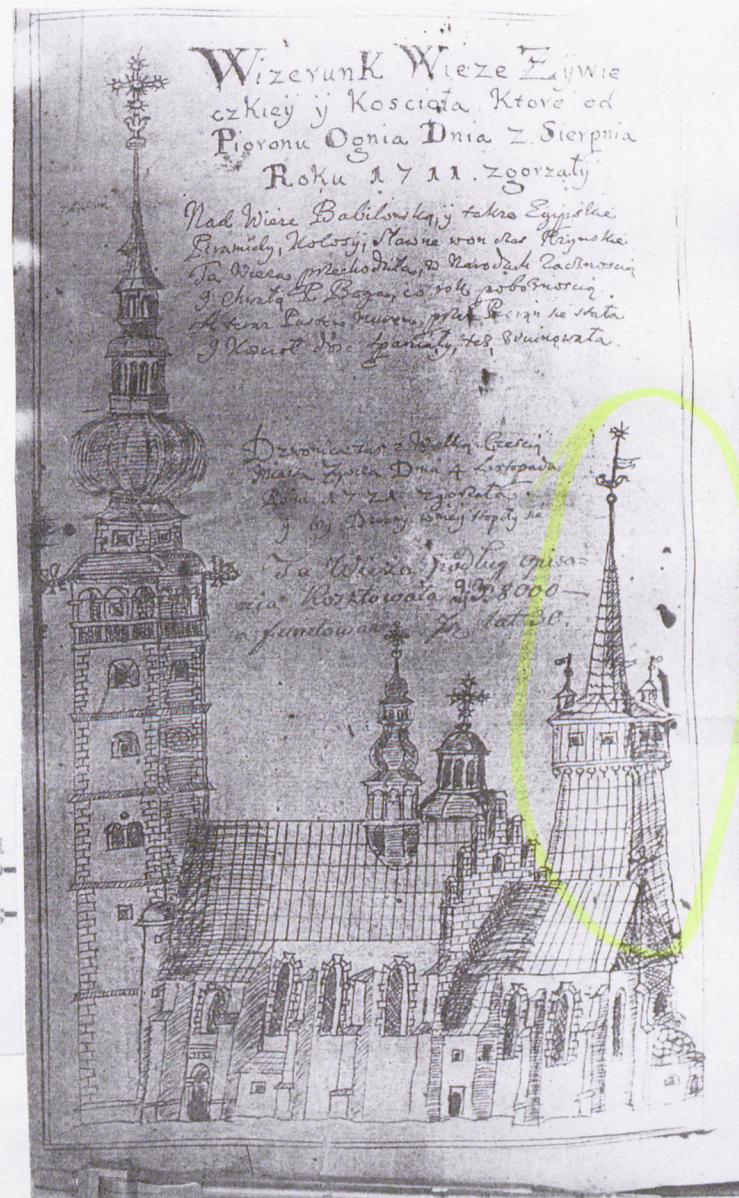 Wizerunk Wieze Zywie
czkiey y Kosciola Ktore od
Pioronu Ognia Dnia 2 Sierpnia
Roku 1711. zgorzały
Nad Wieze Babilonską, y takze Egipskie
Piramidy, Kolossy, sławne won czas Rzymskie
Ta Wieza przechodziła, w Narodach Zacnoscią
y chwałą P. Boga, pobożnoscią.
Y Koscioł dosc spaniały, też zruinowała.
Dzwonica zas z Wielką Częscią
Miasta Zywca Dnia 4 Listopada
Roku 1721 zgorzała
y Dzwony w niey
Ta Wieża podług opisa=
nia Kosztowała 28000 —
fundowana lat 30.